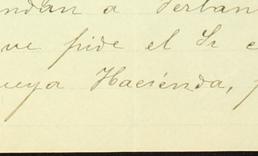 ndan a Fertan
ue pide el Sr c
ueya Hacienda, f